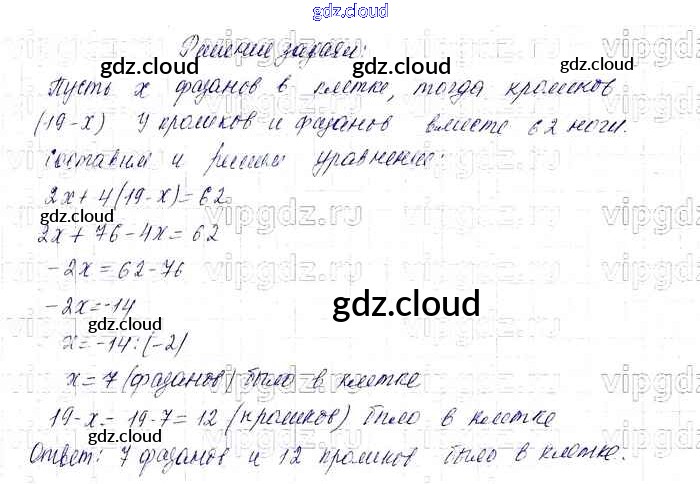 gdz.cloud
Решение задачи:
gdz.cloud gdz.cloud gdz.cloud
Пусть x фазанов в клетке, тогда кроликов
(19-x) У кроликов и фазанов вместе 62 ноги.
Составим и решим уравнение:
2x+4(19-x)=62
gdz.cloud
2x+76-4x=62
-2x=62-76
-2x=-14
gdz.cloud gdz.cloud
x=-14:(-2)
x=7 (фазанов) было в клетке
19-x=19-7=12 (кроликов) было в клетке
gdz.cloud gdz.cloud
Ответ: 7 фазанов и 12 кроликов было в клетке.
gdz.cloud
vipgdz.ru